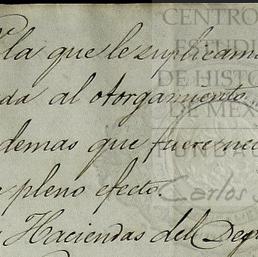 la que le suplicam
da al otorgamiento
demas que fueren ne
pleno efecto.
Haciendas del Dep
CENTRO
ESTUDI
DE HISTO
DE MEX
FUNDA
Carlos S